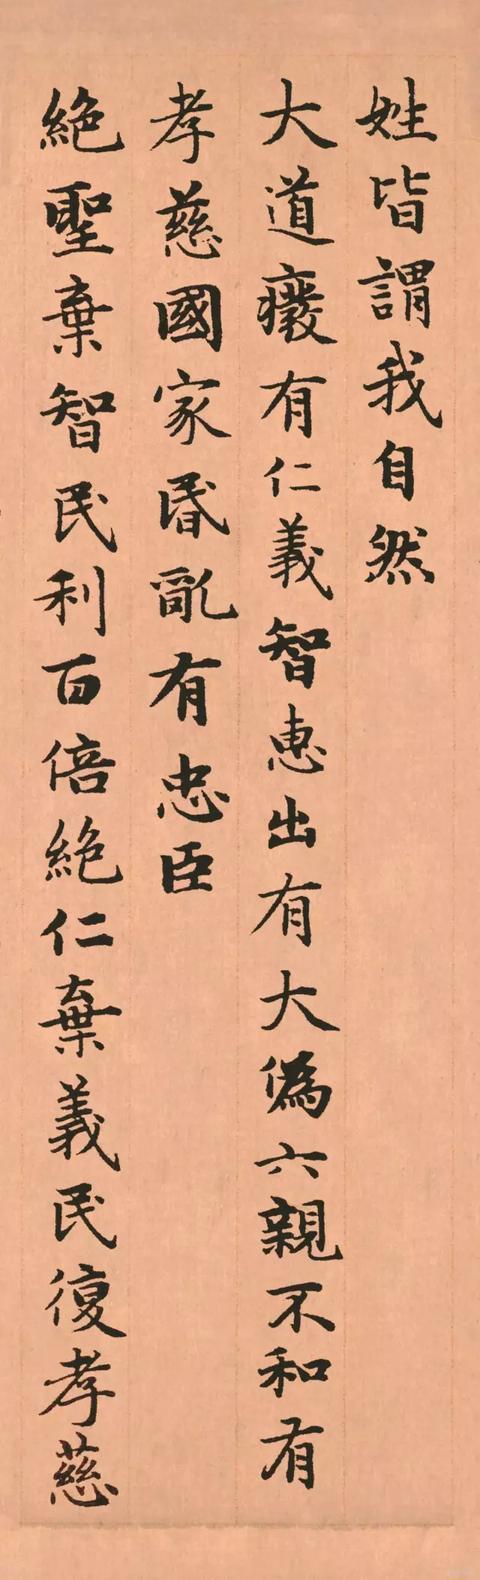 姓皆謂我自然
大道癈有仁義智惠出有大偽六親不和有
孝慈國家昬亂有忠臣
絕聖棄智民利百倍絕仁棄義民復孝慈